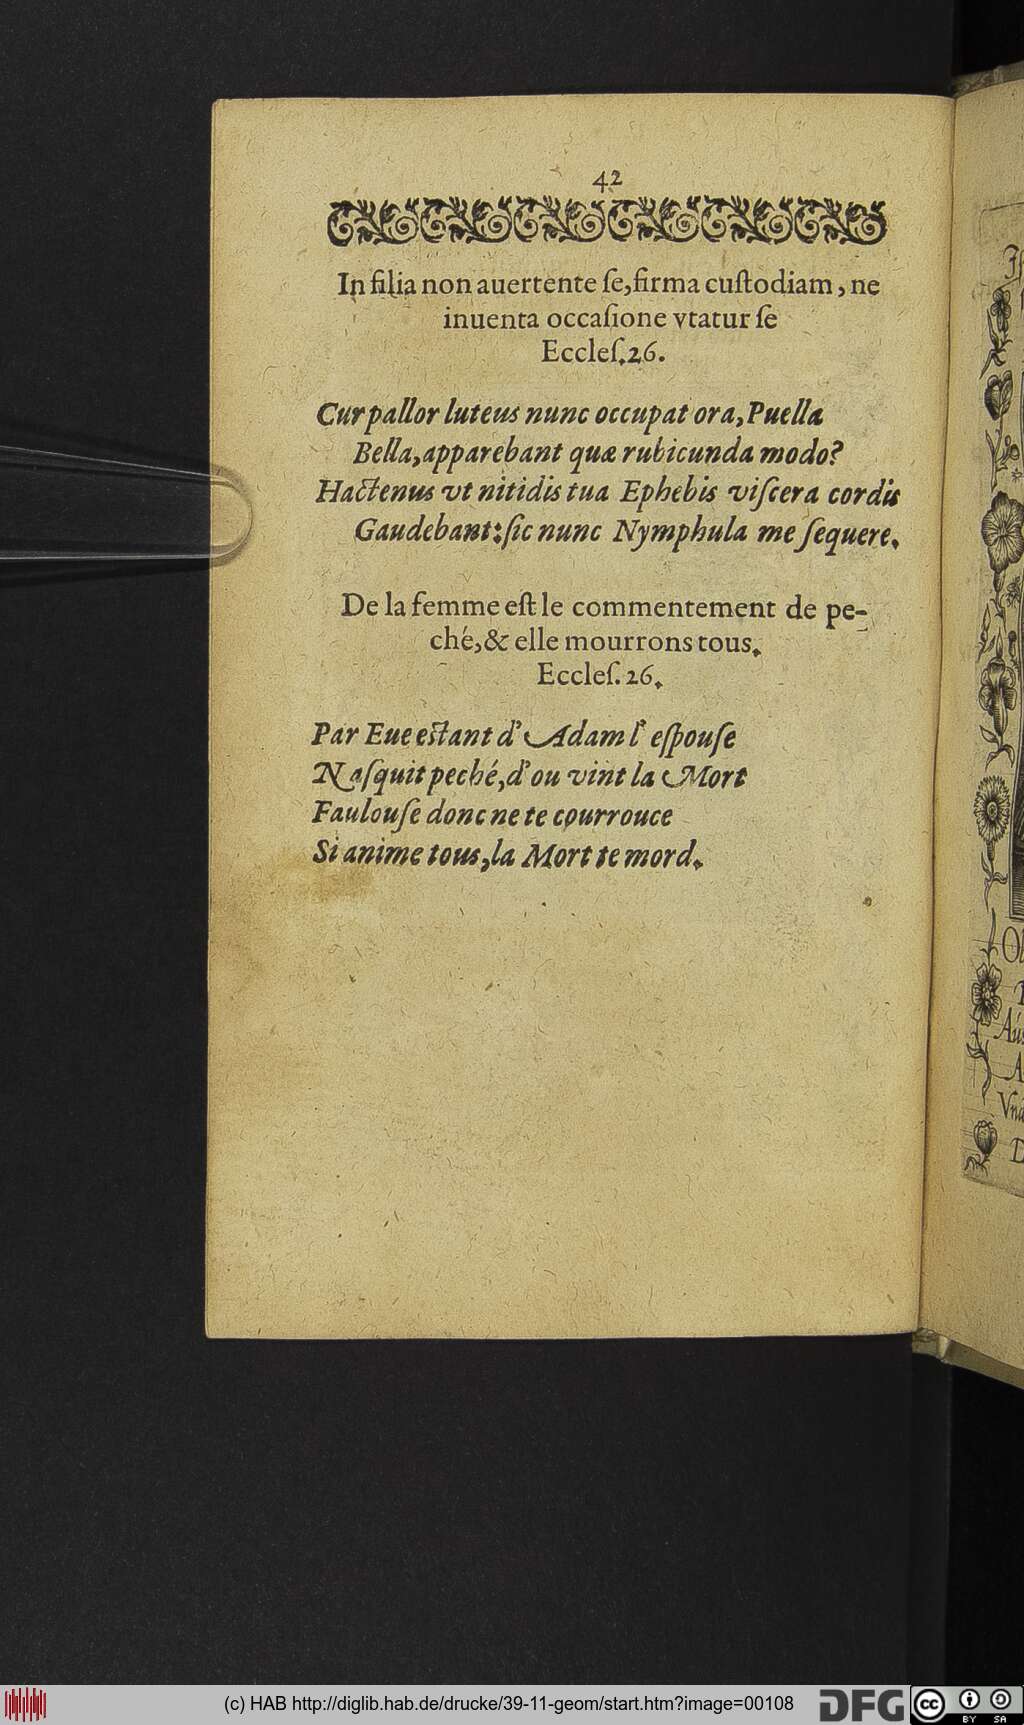 42
In filia non auertente ſe, firma cuſtodiam, ne
inuenta occaſione vtatur ſe
Eccleſ. 26.
Cur pallor luteus nunc occupat ora, Puella
Bella, apparebant quæ rubicunda modo?
Hactenus vt nitidis tua Ephebis viſcera cordis
Gaudebant: ſic nunc Nymphula me ſequere.
De la femme eſt le commentement de pe-
ché, & elle mourrons tous.
Eccleſ. 26.
Par Eue eſtant d' Adam l' eſpouſe
Naſquit peché, d'ou vint la Mort
Faulouſe donc ne te courrouce
Si anime tous, la Mort te mord.
(c) HAB http://diglib.hab.de/drucke/39-11-geom/start.htm?image=00108
DFG
cc
BY SA